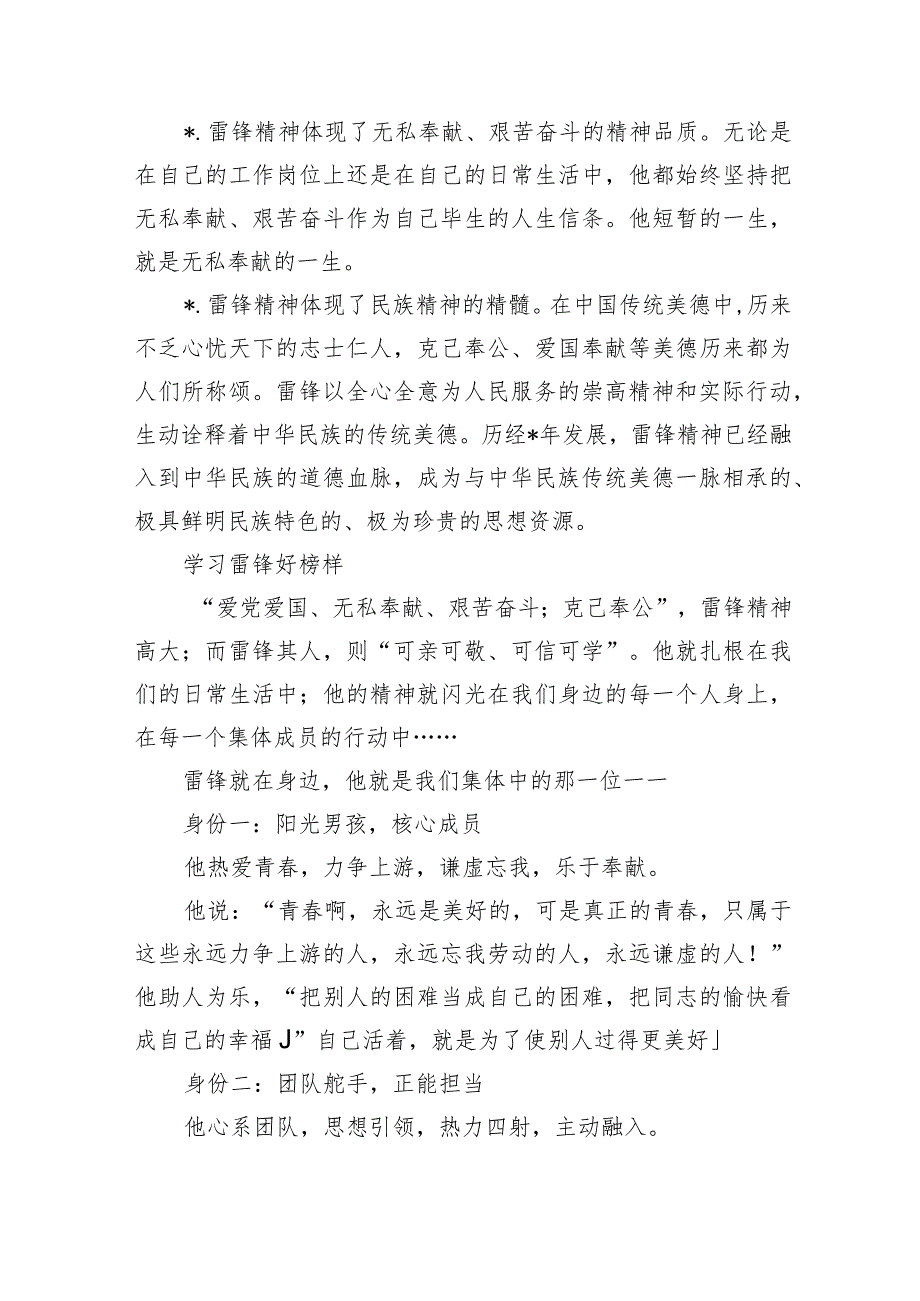 *. 雷锋精神体现了无私奉献、艰苦奋斗的精神品质。无论是
在自己的工作岗位上还是在自己的日常生活中，他都始终坚持把
无私奉献、艰苦奋斗作为自己毕生的人生信条。他短暂的一生，
就是无私奉献的一生。
*. 雷锋精神体现了民族精神的精髓。在中国传统美德中,历来
不乏心忧天下的志士仁人，克己奉公、爱国奉献等美德历来都为
人们所称颂。雷锋以全心全意为人民服务的崇高精神和实际行动，
生动诠释着中华民族的传统美德。历经*年发展，雷锋精神已经融
入到中华民族的道德血脉，成为与中华民族传统美德一脉相承的、
极具鲜明民族特色的、极为珍贵的思想资源。
学习雷锋好榜样
“爱党爱国、无私奉献、艰苦奋斗；克己奉公”，雷锋精神
高大；而雷锋其人，则“可亲可敬、可信可学”。他就扎根在我
们的日常生活中；他的精神就闪光在我们身边的每一个人身上，
在每一个集体成员的行动中……
雷锋就在身边，他就是我们集体中的那一位一一
身份一：阳光男孩，核心成员
他热爱青春，力争上游，谦虚忘我，乐于奉献。
他说：“青春啊，永远是美好的，可是真正的青春，只属于
这些永远力争上游的人，永远忘我劳动的人，永远谦虚的人！”
他助人为乐，“把别人的困难当成自己的困难，把同志的愉快看
成自己的幸福J”自己活着，就是为了使别人过得更美好」
身份二：团队舵手，正能担当
他心系团队，思想引领，热力四射，主动融入。